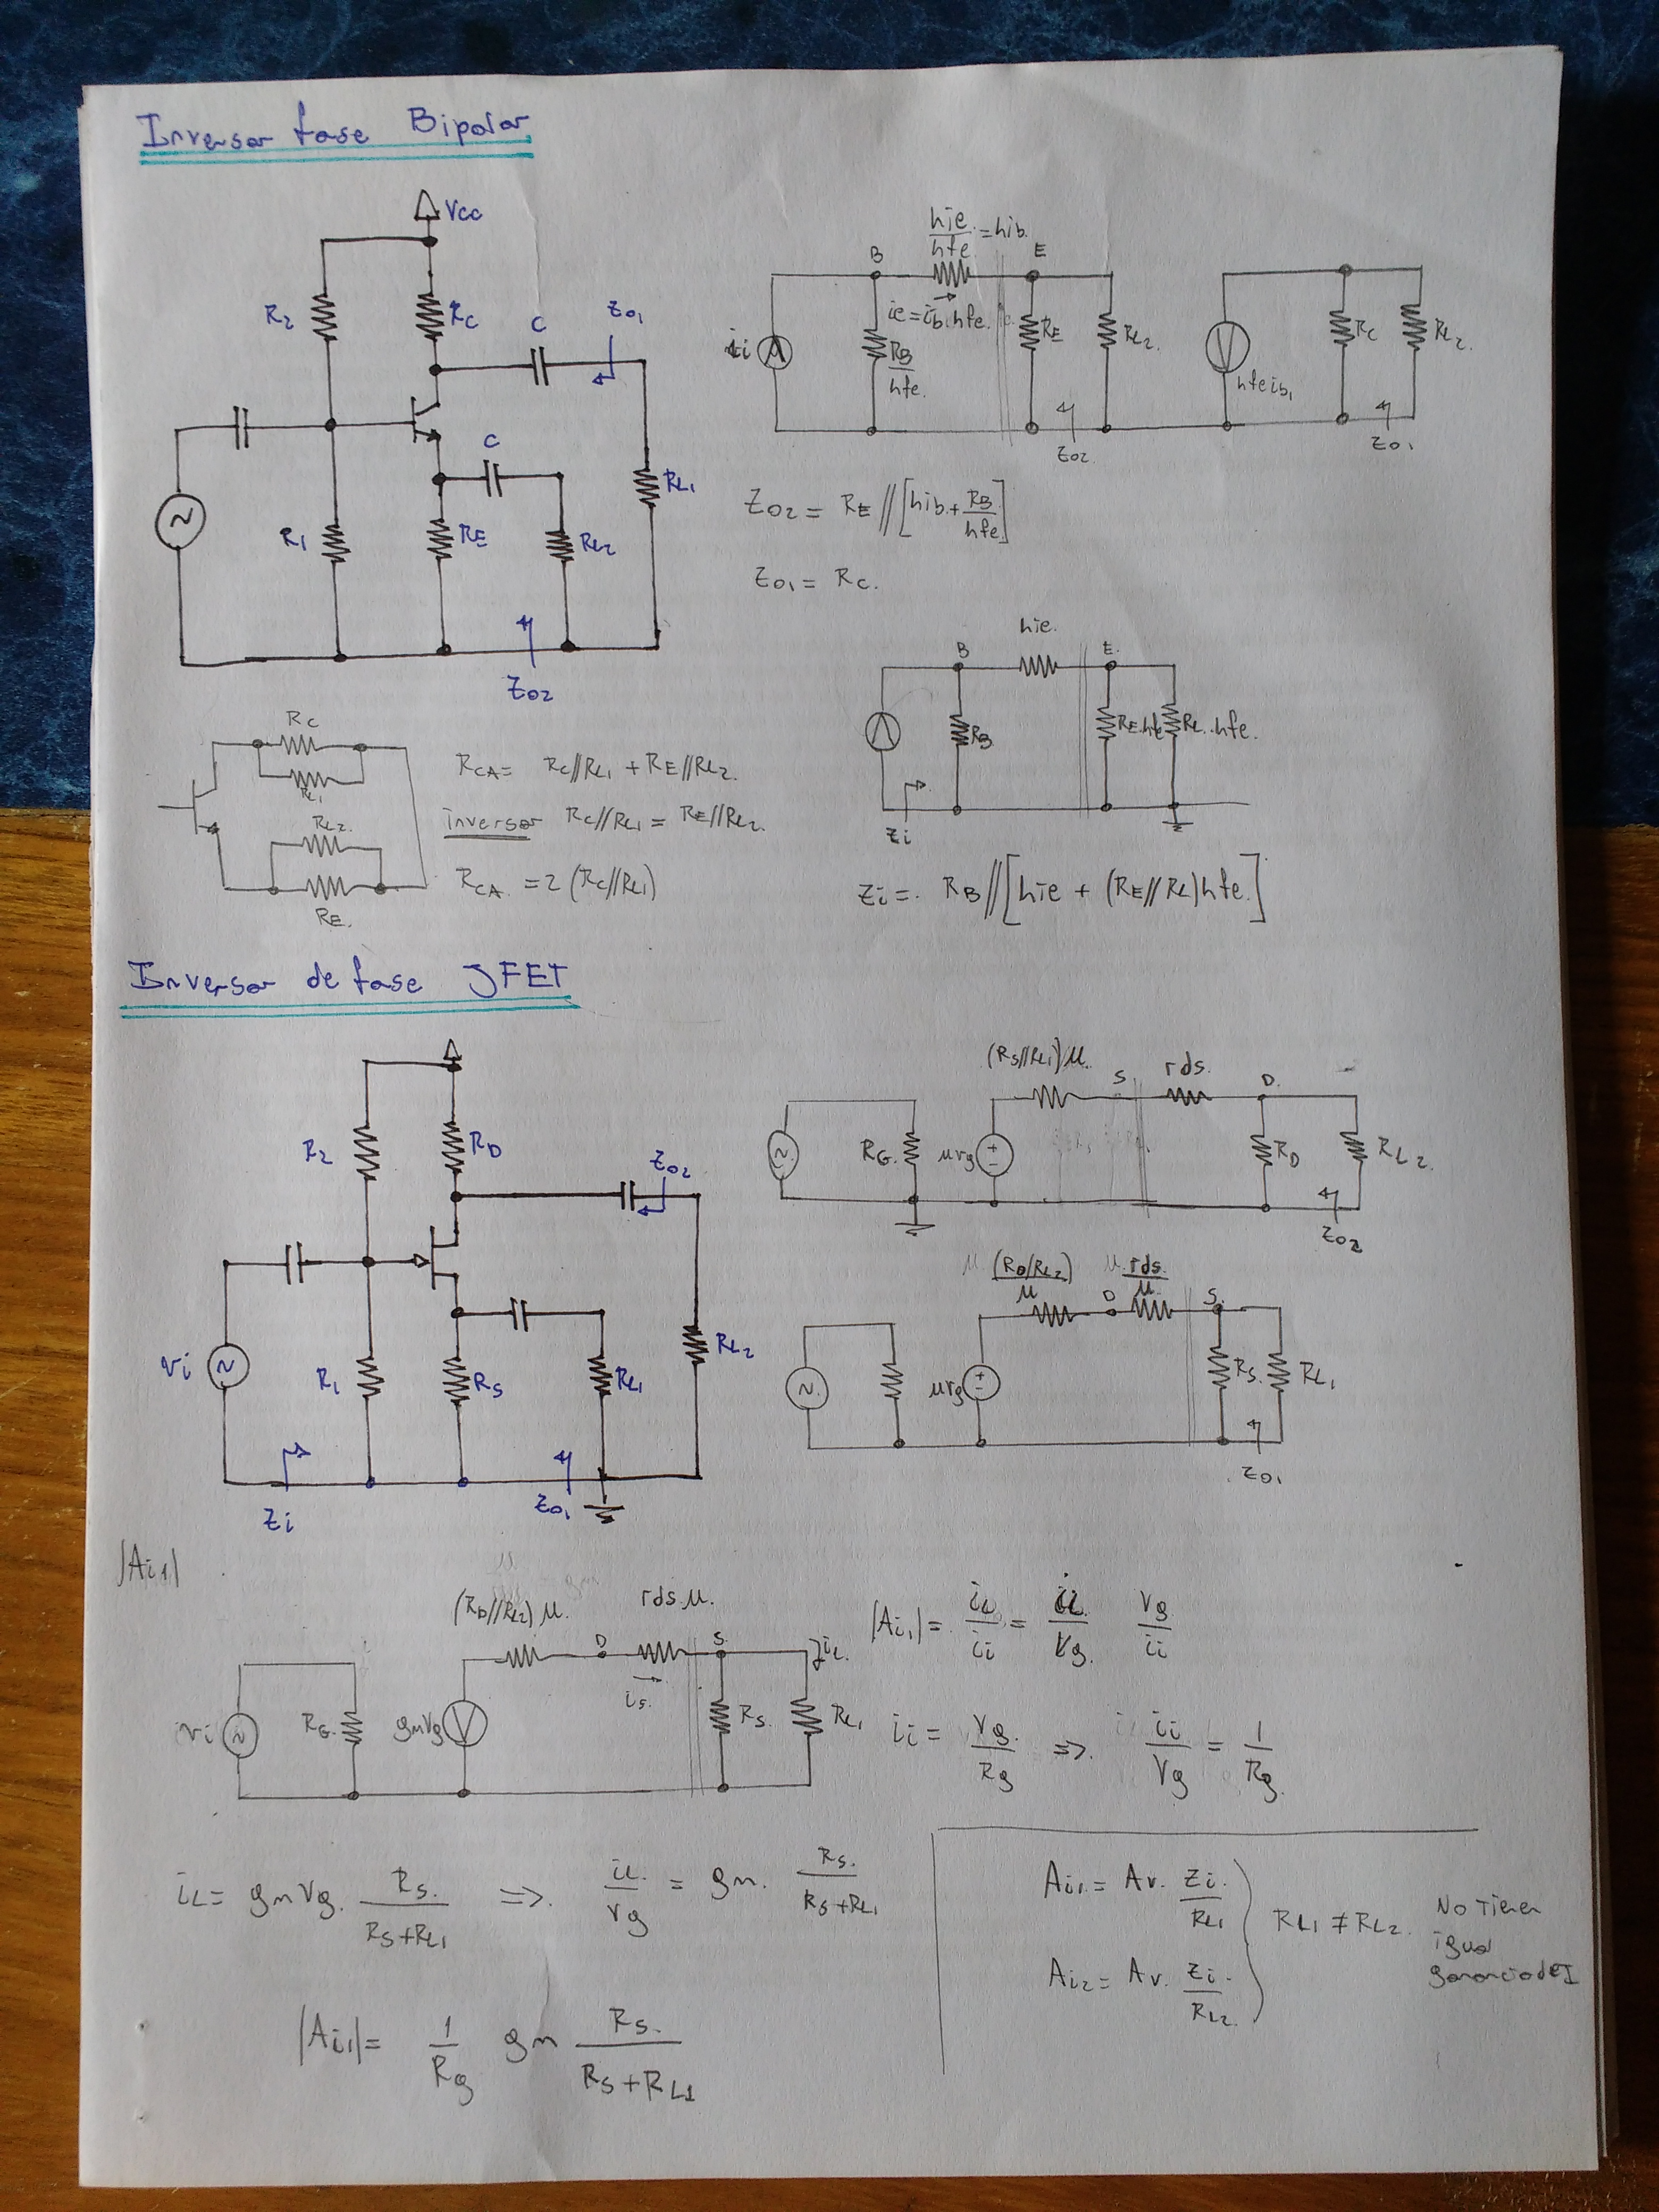 Inversor fase Bipolar
Vcc
R2
RC
C
Zo1
C
RL1
R1
RE
RL2
Zo2
hie/hfe = hib.
B
E
ie = ib.hfe.
ii
RB/hfe.
RE
RL2.
Zo2
hfe ib1
RC
RL2.
Zo1
Zo2 = RE // [hib + RB/hfe]
Zo1 = RC.
RC
RL1
RL2.
RE.
RCA = RC//RL1 + RE//RL2.
inversor RC//RL1 = RE//RL2.
RCA. = 2 (RC//RL1)
hie.
B
E.
RB
RE.hfe
RL.hfe.
Zi
Zi = RB // [hie + (RE//RL)hfe.]
Inversor de fase JFET
R2
RD
Zo2
vi
R1
RS
RL1
RL2
Zi
Zo1
(RS//RL1)μ.
S
rds.
D.
RG.
μvg
RD
RL2.
Zo2
(RD/RL2)/μ
D
rds/μ
S.
μvg
RS.
RL1
Zo1
|Ai1|
(RD//RL2)μ.
rds.μ.
D
S.
iL.
is.
vi
RG.
gmvg
RS.
RL1
|Ai1| = iL/ii = iL/Vg. Vg/ii
ii = Vg./Rg => ii/Vg = 1/Rg.
iL = gmVg. RS./RS+RL1 => iL/Vg = gm. RS./RS+RL1
|Ai1| = 1/Rg gm RS./RS+RL1
Ai1 = Av. Zi./RL1
Ai2 = Av. Zi./RL2.
RL1 ≠ RL2.
No Tienen
igual
ganancia de I